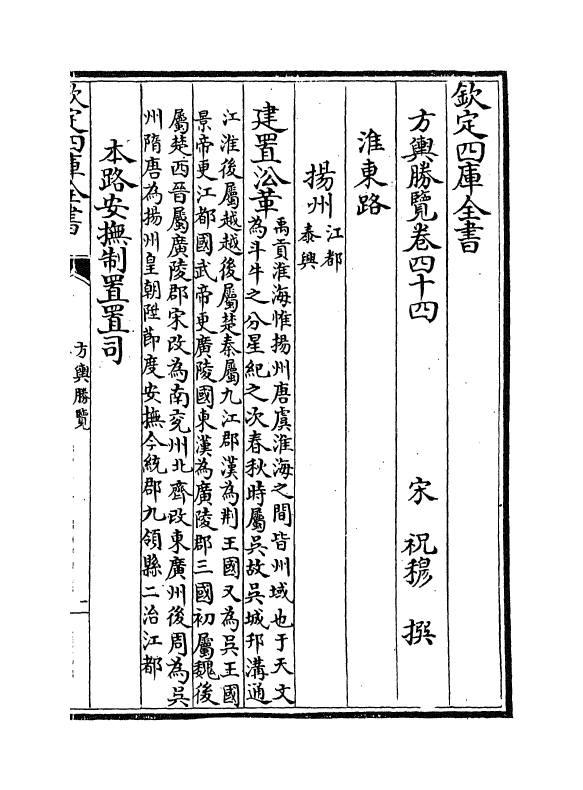 欽定四庫全書
方輿勝覽卷四十四　宋　祝穆　撰
淮東路
揚州江都
泰興
建置沿革禹貢淮海惟揚州唐虞淮海之間皆州域也于天文
為斗牛之分星紀之次春秋時屬吳故吳城邗溝通
江淮後屬越越後屬楚秦屬九江郡漢為荆王國又為吳王國
景帝更江都國武帝更廣陵國東漢為廣陵郡三國初屬魏後
屬楚西晉屬廣陵郡宋改為南兖州北齊改東廣州後周為吳
州隋唐為揚州皇朝陞節度安撫今統郡九領縣二治江都
本路安撫制置置司
欽定四庫全書
方輿勝覽